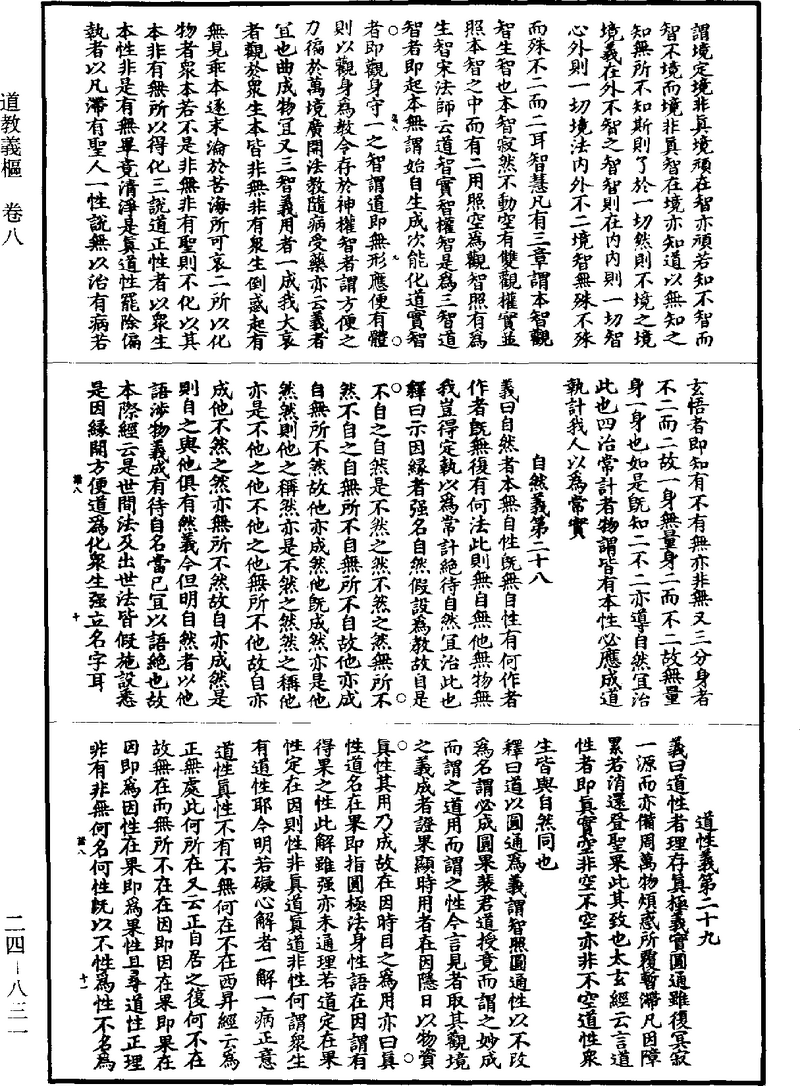 道教義樞 卷八
二四—八三一
謂境定境非眞境頑在智亦頑若知不智而
智不境而境非眞智在境亦知道以無知之
知無所不知斯則了於一切然則不境之境
境義在外不智之智智則在內內則一切智
心外則一切境法內外不二境智無殊不殊
而殊不二而二耳智慧凡有三章謂本智觀
智生智也本智寂然不動空有雙觀權實並
照本智之中而有二用照空爲觀智照有爲
生智宋法師云道智實智權智是爲三智道
智者即起本無謂始自生成次能化道實智
者即觀身守一之智謂道即無形應便有體
則以觀身爲教令存於神權智者謂方便之
乃徧於萬境廣開法教隨病受藥亦云義者
宜也曲成物宜又三智義用者一成我大哀
者觀於衆生本皆非無非有衆生倒惑起有
無見乖本逐末淪於苦海所可哀二所以化
物者衆本若不是非無非有聖則不化以其
本非有無所以得化三說道正性者以衆生
本性非是有無畢竟清淨是眞道性罷除偏
執者以凡滯有聖人一性說無以治有病若
玄悟者即知有不有無亦非無又三分身者
不二而二故一身無量身二而不二故無量
身一身也如是既知二不二亦導自然宜治
此也四治常計者物謂皆有本性必應成道
執計我人以爲常實
自然義第二十八
義曰自然者本無自性既無自性有何作者
作者既無復有何法此則無自無他無物無
我豈得定執以爲常計絕待自然宜治此也
釋曰示因緣者强名自然假設爲教故自是
不自之自然是不然之然不然之然無所不
然不自之自無所不自無所不自故他亦成
自無所不然故他亦成然他既成然亦是他
然然則他之稱然亦是不然之然然之稱他
亦是不他之他不他之他無所不他故自亦
成他不然之然亦無所不然故自亦成然是
則自之與他俱有然義今但明自然者以他
語涉物義成有待自名當已宜以語絕也故
本際經云是世間法及出世法皆假施設悉
是因緣開方便道爲化衆生强立名字耳
道性義第二十九
義曰道性者理存眞極義實圓通雖復冥寂
一源而亦備周萬物煩惑所覆暫滯凡因障
累若消還登聖果此其致也太玄經云言道
性者即眞實空非空不空亦非不空道性衆
生皆與自然同也
釋曰道以圓通爲義謂智照圓通性以不改
爲名謂必成圓果裴君道授竟而謂之妙成
而謂之道用而謂之性今言見者取其觀境
之義成者證果顯時用者在因隱日以物資
眞性其用乃成故在因時目之爲用亦曰眞
性道名在果即指圓極法身性語在因謂有
得果之性此解雖强亦未通理若道定在果
性定在因則性非眞道眞道非性何謂衆生
有道性耶今明若礙心解者一解一病正意
道性眞性不有不無何在不在西昇經云爲
正無處此何所在又云正自居之復何不在
故無在而無所不在在因即因在果即果在
因即爲因性在果即爲果性且尋道性正理
非有非無何名何性既以不性爲性不名爲